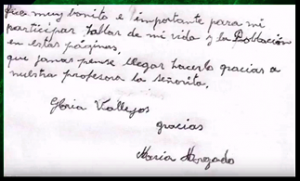 fue muy bonito e importante para mi
participar. hablar de mi vida y la Población
en estas páginas.
que jamas pense llegar hacerlo gracias a
nuestra profesora la señorita.
Gloria Vallejos
gracias
Maria Monzado